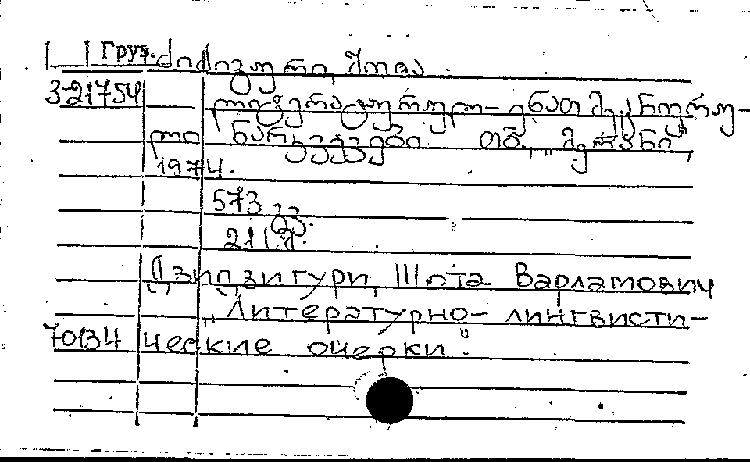 Груз. ძიძიგური, შოთა
3-21754
ლიტერატურულ-ენათმეცნიერუ-
ლი ნარკვევები. თბ., „მერანი“,
1974.
573 გვ.
Дзидзигури, Шота Варламович
„Литературно-лингвисти-
ческие очерки“.